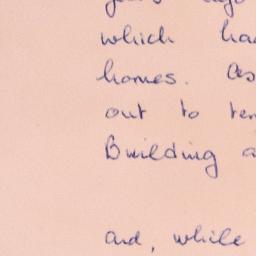 which
homes. as
out to
Building
and, while